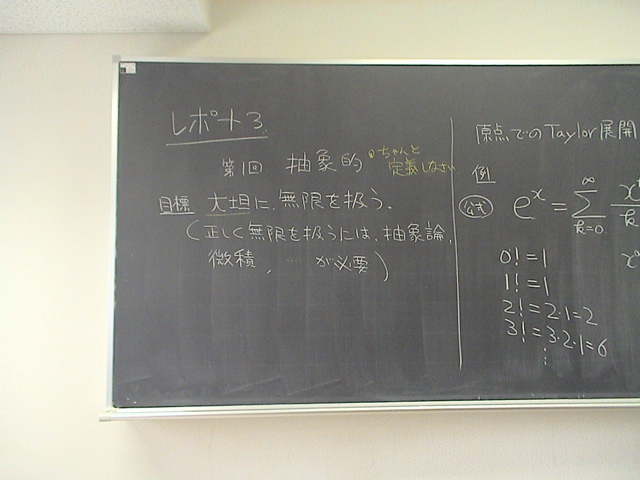 レポート3.
第1回 抽象的
ちゃんと
定義しなさい
目標 大坦に、無限を扱う.
(正しく無限を扱うには、抽象論,
微積, … が必要)
原点でのTaylor展開
例
公式 e^x = Σ_{k=0}^{∞} x
0! = 1
1! = 1
2! = 2·1 = 2
3! = 3·2·1 = 6
⋮